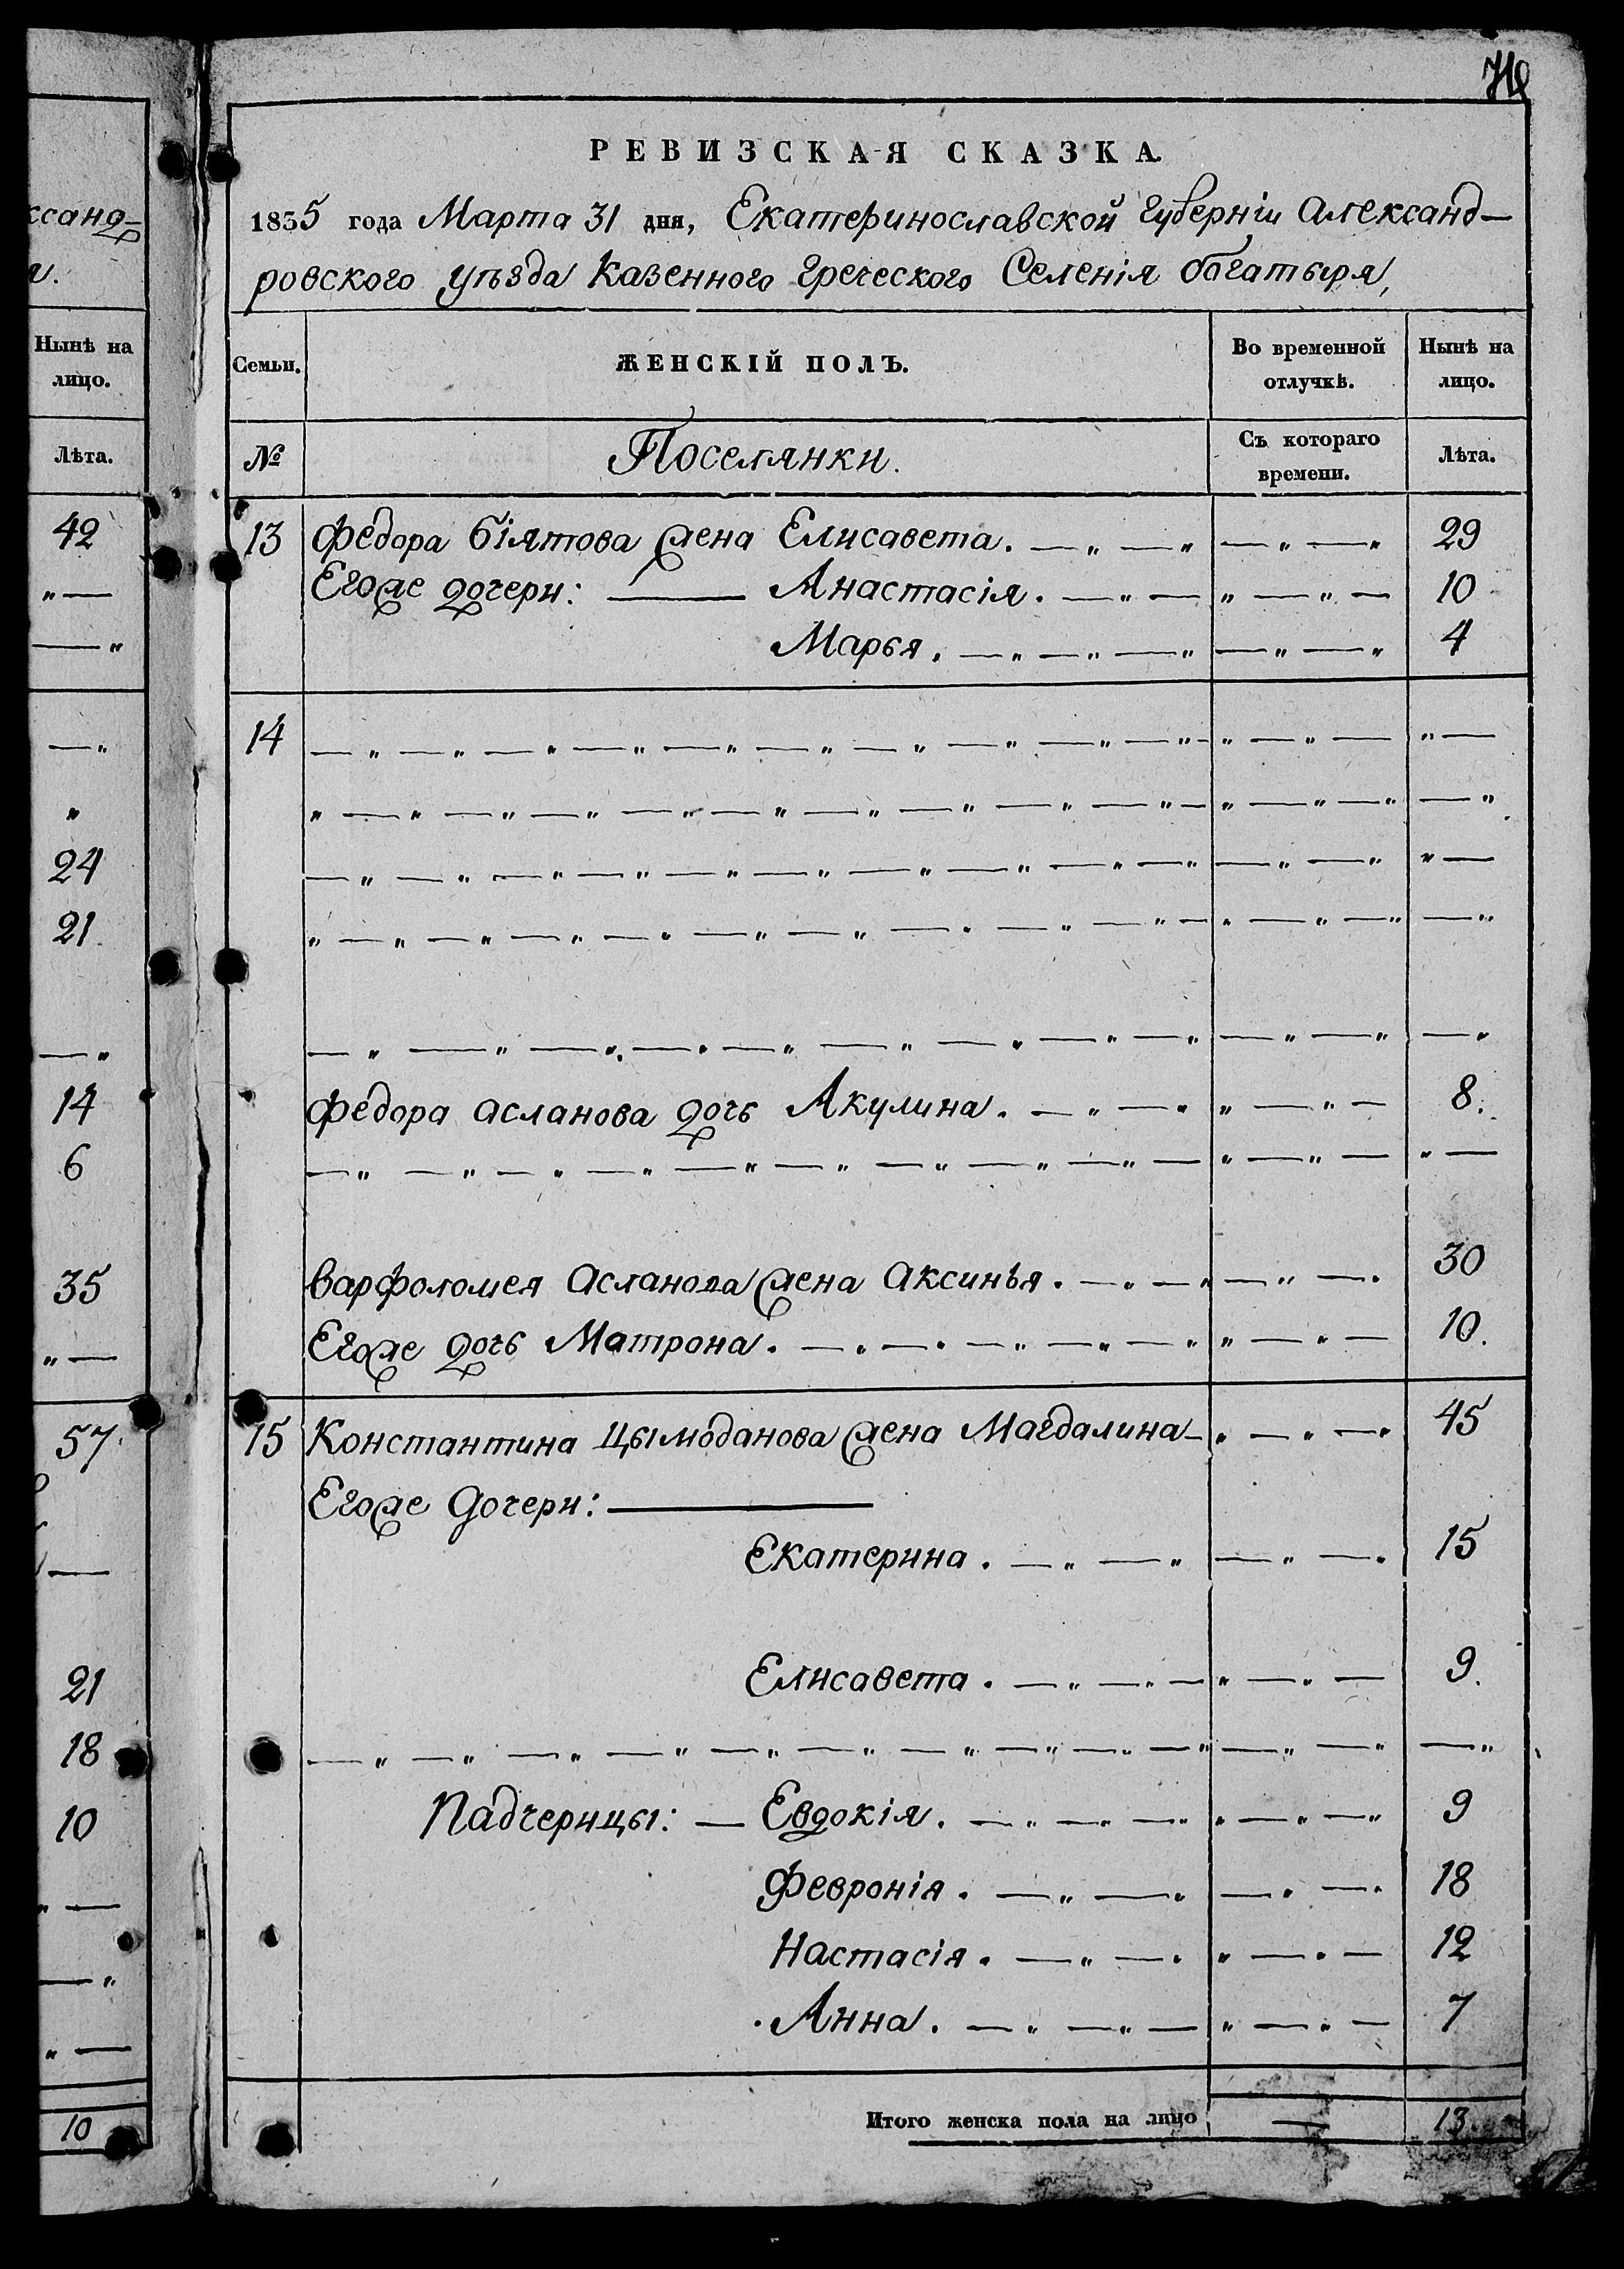 ксанд-
Нынѣ на
лицо.
Лѣта.
42
" —
— "
— "
"
24
21.
— "
14
6
35
" —
57.
—
21
18
10
" —
— "
" —
10
РЕВИЗСКАЯ СКАЗКА.
1835 года Марта 31 дня, Екатеринославской губерніи Александ-
ровского уѣзда Казенного Греческого Селенія богатыря,
Семьи. ЖЕНСКІЙ ПОЛЪ. Во временной отлучкѣ. Нынѣ на лицо.
№ Поселянки. Съ котораго времени. Лѣта.
13 Федора Біятова жена Елисавета. — " — " — " — " 29
Егоже дочери: — Анастасія. — " — " — " — 10
Марья. — " — " — " — " — " 4
14 — " — " — " — " — " — " — " — " — " — " — " — " — " —
" — " — " — " — " — " — " — " — " — " — " — " — " — "
— " — " — " — " — " — " — " — " — " — " — " — " " —
" — " — " — " — " — " — " — " — " — " — " — " — " — "
— " — " — " — " — " — " — " — " — " — " — " — "
Федора Асланова дочь Акулина. — " — " " — " — 8.
— " — " — " — " — " — " — " — " — " — " — " — " —
Варфоломея Асланова жена Аксинья. — " — " — " — " 30
Егоже дочь Матрона. — " — " — " — " — " " — " — 10.
15 Константина Цымоданова жена Магдалина — " — " — " 45
Егоже Дочери: —
Екатерина. — " — " — " — " 15
Елисавета. — " — " — " — " — 9.
— " — " — " — " — " — " — " — " — " — " — " — " — "
Падчерицы: — Евдокія. — " — " — " " — " — " 9
Февронія. — " — " — " — " 18
Настасія. — " — " " — " — 12
Анна. — " — " — " — " — 7
Итого женска пола на лицо — 13.